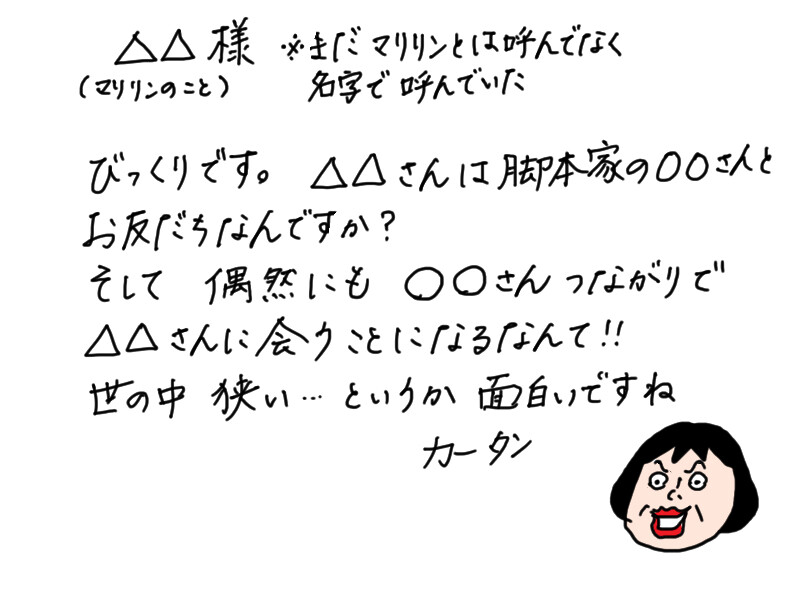 △△様 ※まだマリリンとは呼んでなく
(マリリンのこと) 名字で呼んでいた
びっくりです。 △△さんは脚本家の○○さんと
お友だちなんですか?
そして 偶然にも ○○さんつながりで
△△さんに会うことになるなんて!!
世の中 狭い…というか 面白いですね
カータン